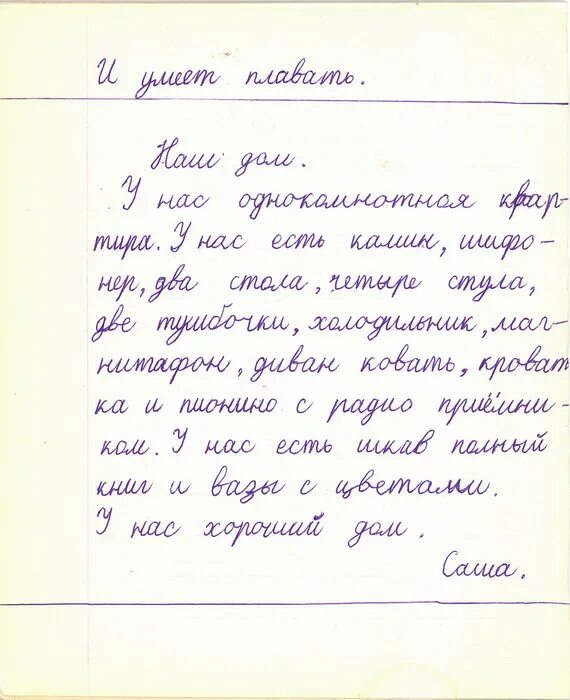 И умеет плавать.
Наш дом.
У нас однокомнотная квар-
тира. У нас есть камин, шифо-
нер, два стола, четыре стула,
две тумбочки, холодильник, маг-
нитафон, диван ковать, кроват
ка и пионино с радио приёмни-
ком. У нас есть шкав полный
книг и вазы с цветами.
У нас хороший дом.
Саша.